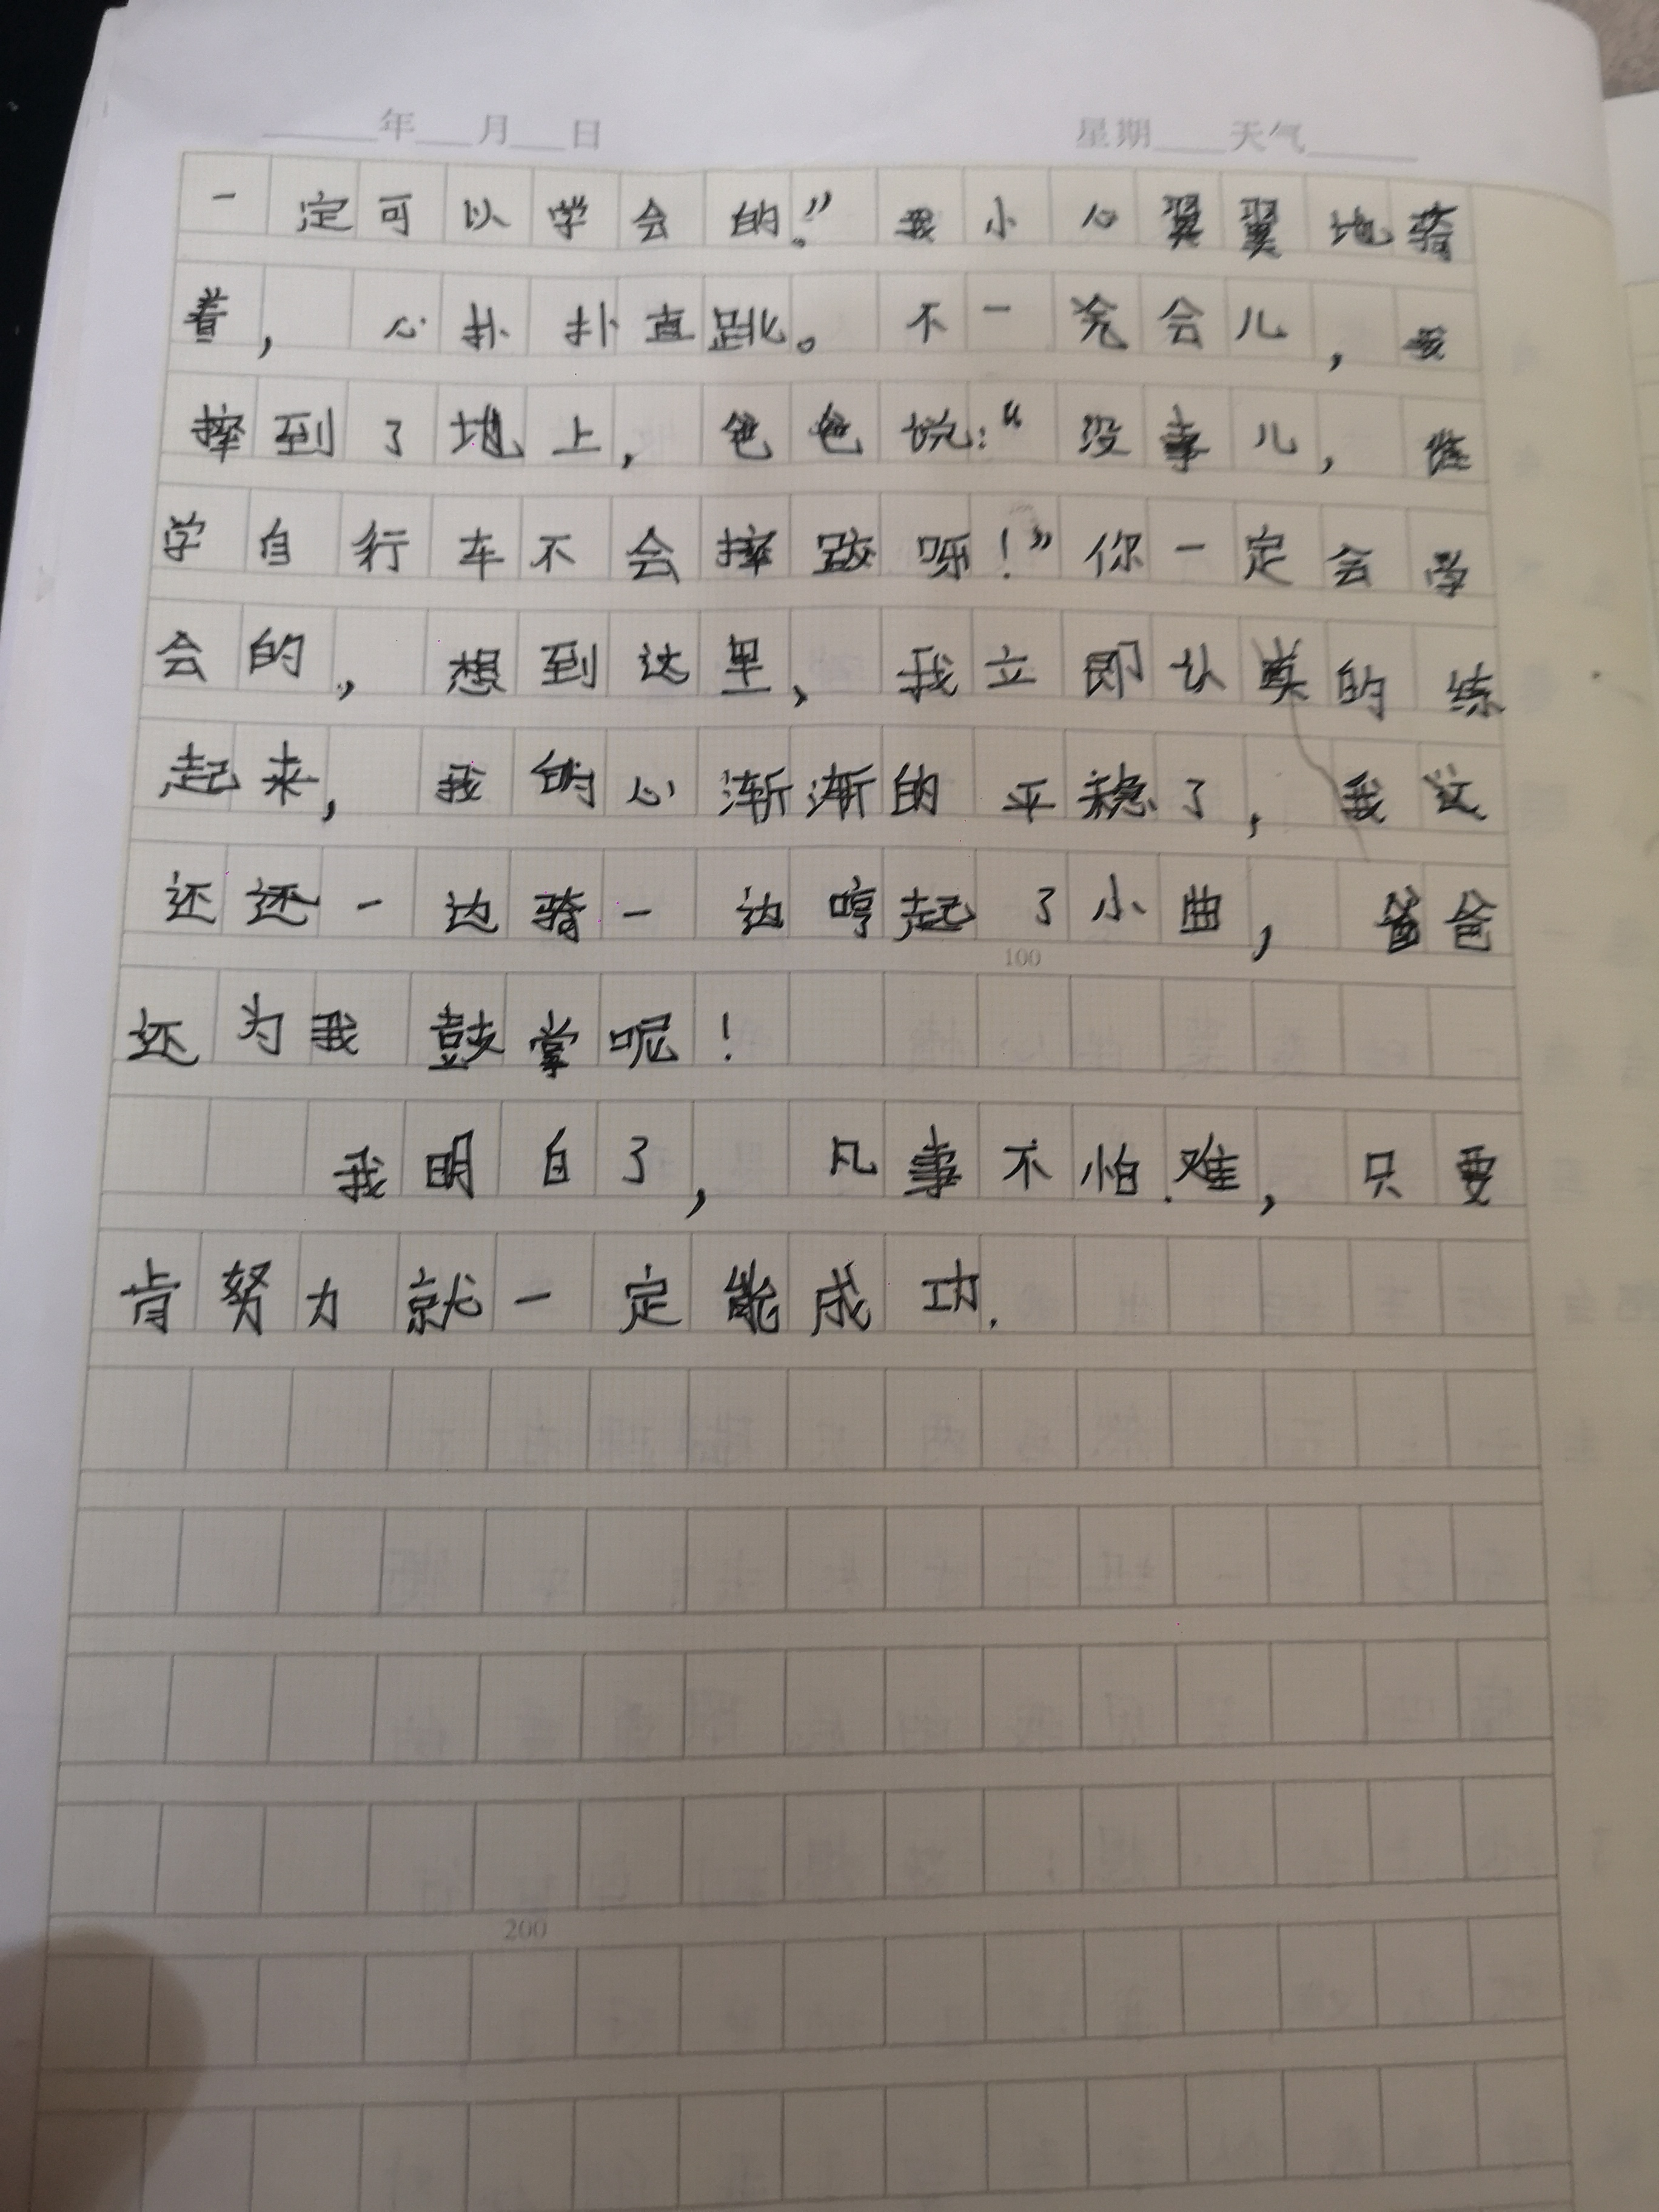 年 月 日 星期 天气
一定可以学会的。”我小心翼翼地骑
着，心扑扑直跳。不一会儿，我
摔到了地上，爸爸说：“没事儿，谁
学自行车不会摔跤呀！”你一定会学
会的，想到这里，我立即认真的练
起来，我的心渐渐的平稳了，我
还还一边骑一边哼起了小曲，爸爸
100
还为我鼓掌呢！
我明白了，凡事不怕难，只要
肯努力就一定能成功.
200